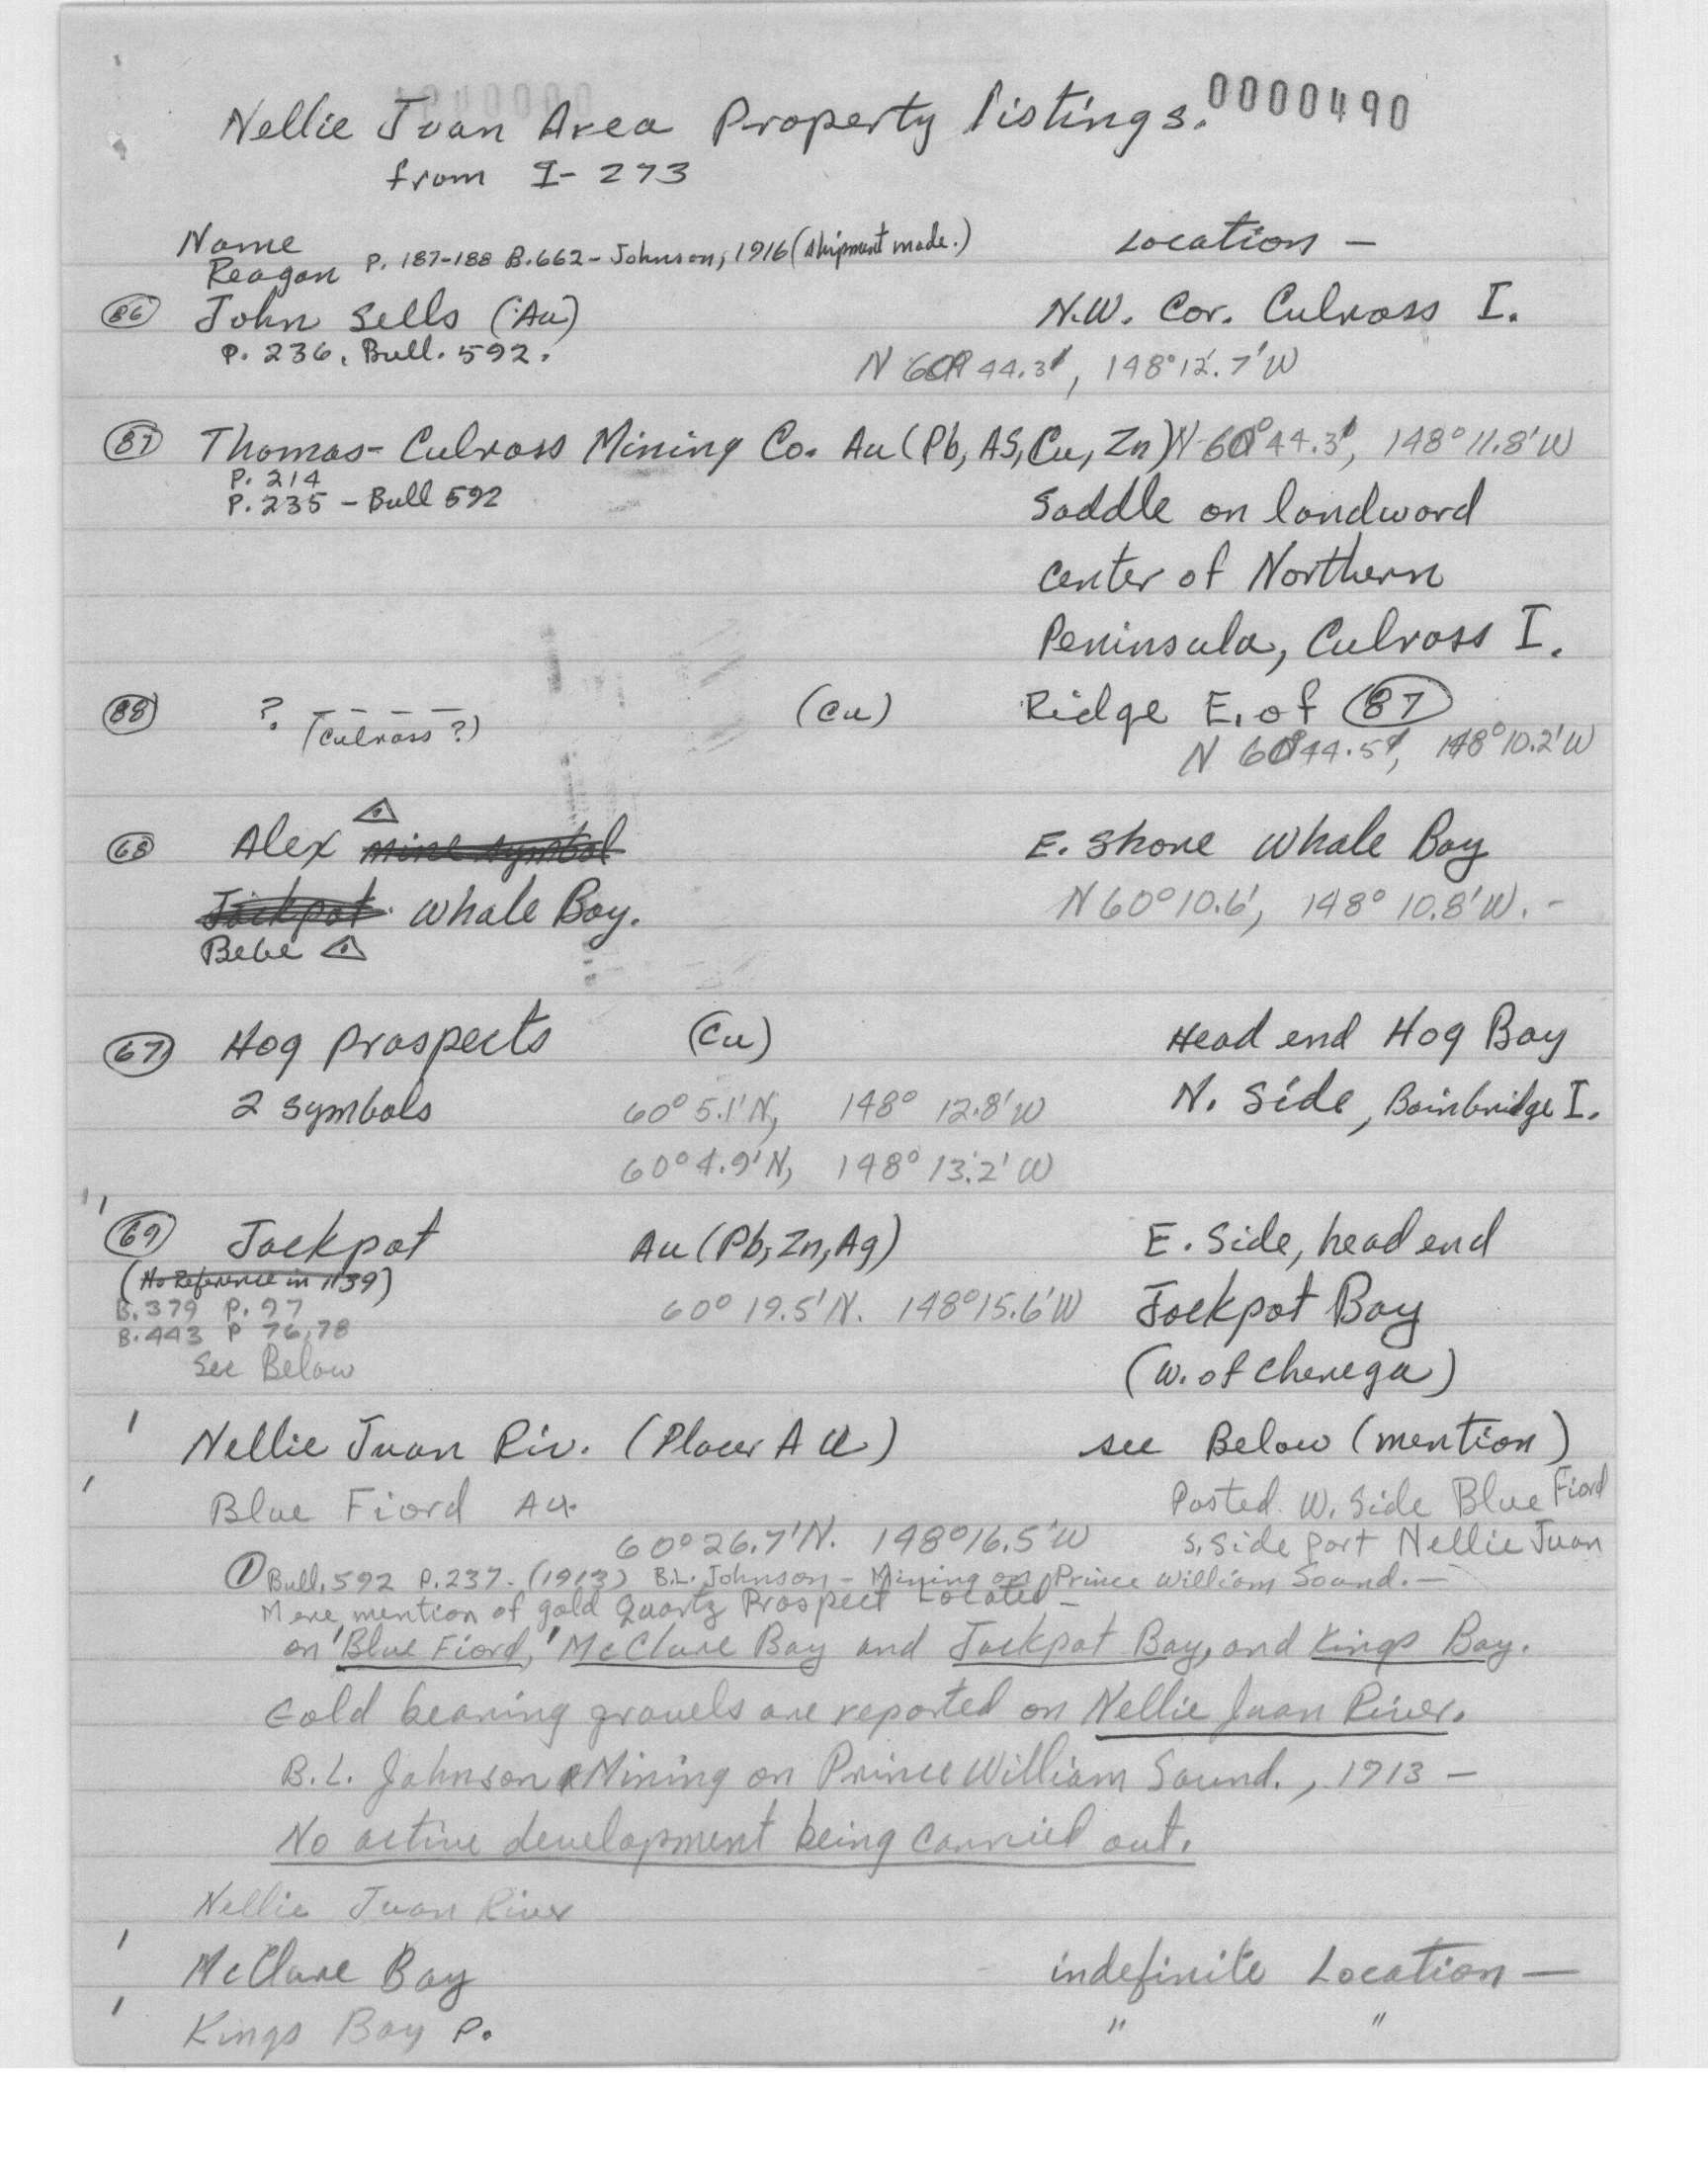 0000490
Nellie Juan Area Property listings.
from I-273
Name
Location —
Reagan P. 187-188 B.662- Johnson, 1916 (shipment made.)
86 John Sells (Au) N.W. Cor. Culross I.
P. 236, Bull. 592.
N 60° 44.3', 148°12.7'W
87 Thomas-Culross Mining Co. Au (Pb, AS, Cu, Zn) N 60°44.3', 148°11.8'W
P. 214
P. 235 - Bull 592
Saddle on landward
center of Northern
Peninsula, Culross I.
88 ? ---- (Cu) Ridge E. of 87
(Culross ?)
N 60°44.5', 148°10.2'W
68 Alex mine symbol E. Shore Whale Bay
Jackpot Whale Bay. N 60°10.6', 148° 10.8'W. -
Bebe
67 Hog Prospects (Cu) Head end Hog Bay
2 symbols 60° 5.1'N, 148° 12.8'W N. Side, Bainbridge I.
60° 4.9'N, 148° 13.2'W
69 Jackpot Au (Pb, Zn, Ag) E. Side, head end
(No Reference in 1139)
B.379 P. 97 60° 19.5'N. 148°15.6'W Jackpot Bay
B.443 P 76,78
See Below (W. of Chenega)
Nellie Juan Riv. (Placer Au) see Below (mention)
Blue Fiord Au. Posted W. Side Blue Fiord
60°26.7'N. 148°16.5'W S. Side Port Nellie Juan
① Bull. 592 P. 237. (1913) B.L. Johnson - Mining on Prince William Sound. —
Mere mention of gold Quartz Prospect Located -
on 'Blue Fiord,' McClure Bay and Jackpot Bay, and Kings Bay.
Gold bearing gravels are reported on Nellie Juan River.
B.L. Johnson Mining on Prince William Sound., 1913 —
No active development being carried out.
Nellie Juan River
McClure Bay indefinite Location —
Kings Bay P. " "